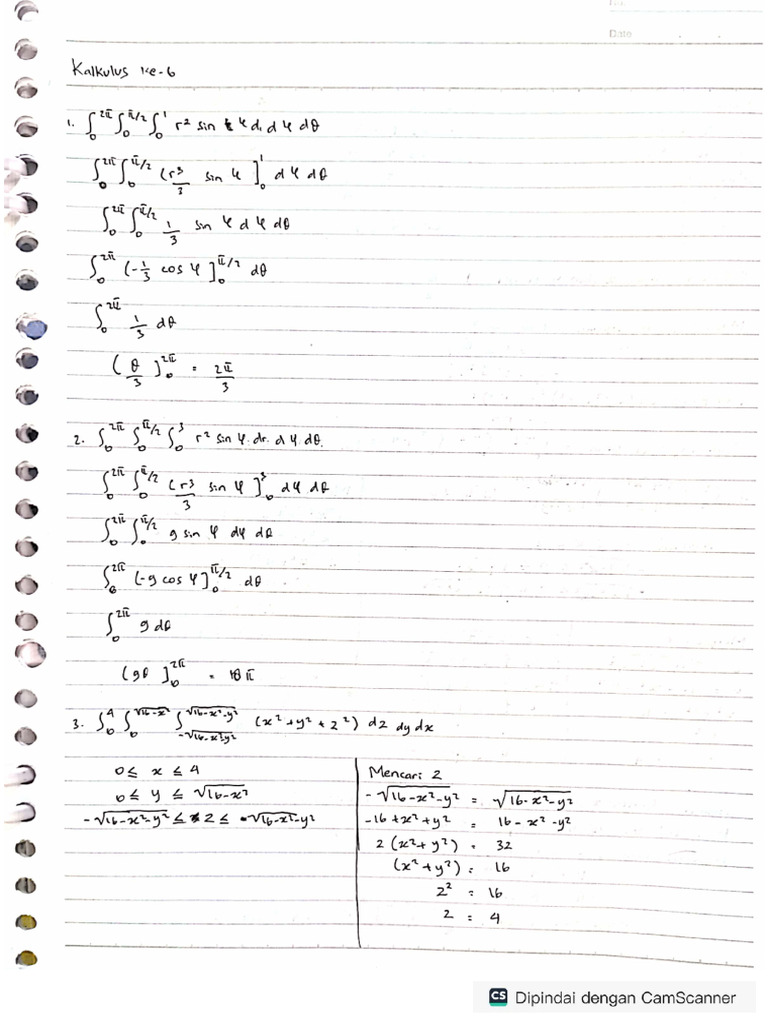 Date
Kalkulus ke-6
1. ∫₀^{2π} ∫₀^{π/2} ∫₀^{1} r² sin φ d, d φ dθ
∫₀^{2π} ∫₀^{π/2} (r³/3 sin φ ]₀^{1} d φ dθ
∫₀^{2π} ∫₀^{π/2} 1/3 sin φ d φ dθ
∫₀^{2π} (-1/3 cos φ ]₀^{π/2} dθ
∫₀^{2π} 1/3 dθ
(θ/3 ]₀^{2π} = 2π/3
2. ∫₀^{2π} ∫₀^{π/2} ∫₀^{3} r² sin φ. dr. d φ. dθ.
∫₀^{2π} ∫₀^{π/2} (r³/3 sin φ ]₀^{3} dφ dθ
∫₀^{2π} ∫₀^{π/2} 9 sin φ dφ dθ
∫₀^{2π} (-9 cos φ ]₀^{π/2} dθ
∫₀^{2π} 9 dθ
(9θ ]₀^{2π} = 18 π
3. ∫₀^{4} ∫₀^{√(16-x²)} ∫_{-√(16-x²-y²)}^{√(16-x²-y²)} (x² + y² + z²) dz dy dx
0 ≤ x ≤ 4
0 ≤ y ≤ √(16-x²)
-√(16-x²-y²) ≤ z ≤ √(16-x²-y²)
Mencari z
-√(16-x²-y²) = √(16-x²-y²)
-16 + x² + y² = 16 - x² - y²
2 (x² + y²) = 32
(x² + y²) = 16
z² = 16
z = 4
CS Dipindai dengan CamScanner